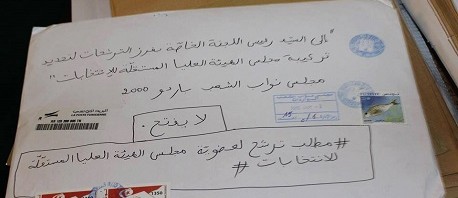 "إلى السيد رئيس اللجنة الخاصة بفرز الترشحات لتجديد
تركيبة مجلس الهيئة العليا المستقلة للانتخابات"
مجلس نواب الشعب باردو 2000
البريد التونسي
LA POSTE TUNISIENNE
لا يفتح.
# مطلب ترشح لعضوية مجلس الهيئة العليا المستقلة
للانتخابات #
1350